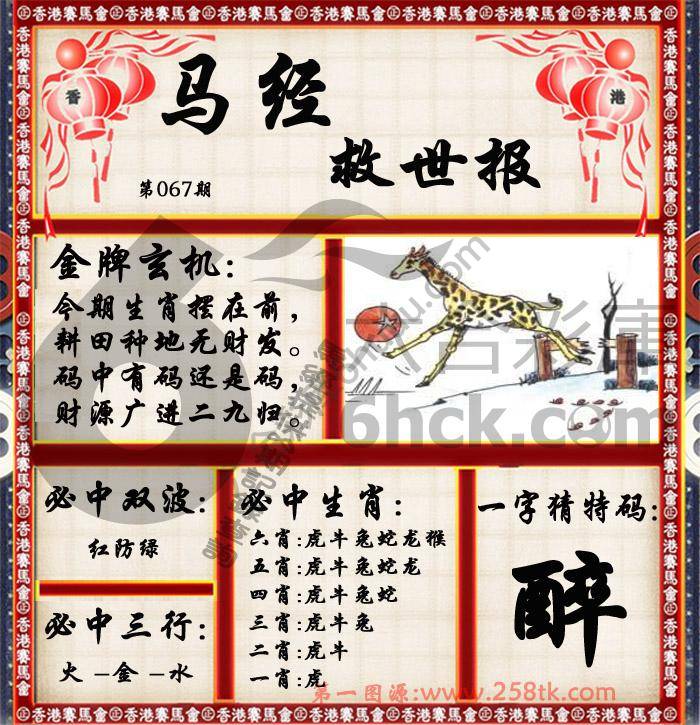 香港賽馬會
香 港
马经
救世报
第067期
金牌玄机:
今期生肖摆在前,
耕田种地无财发。
码中有码还是码,
财源广进二九归。
必中双波:
红防绿
必中三行:
火-金-水
必中生肖:
六肖:虎牛兔蛇龙猴
五肖:虎牛兔蛇龙
四肖:虎牛兔蛇
三肖:虎牛兔
二肖:虎牛
一肖:虎
一字猜特码:
醉
6hck.com
第一图源:www.258tk.com